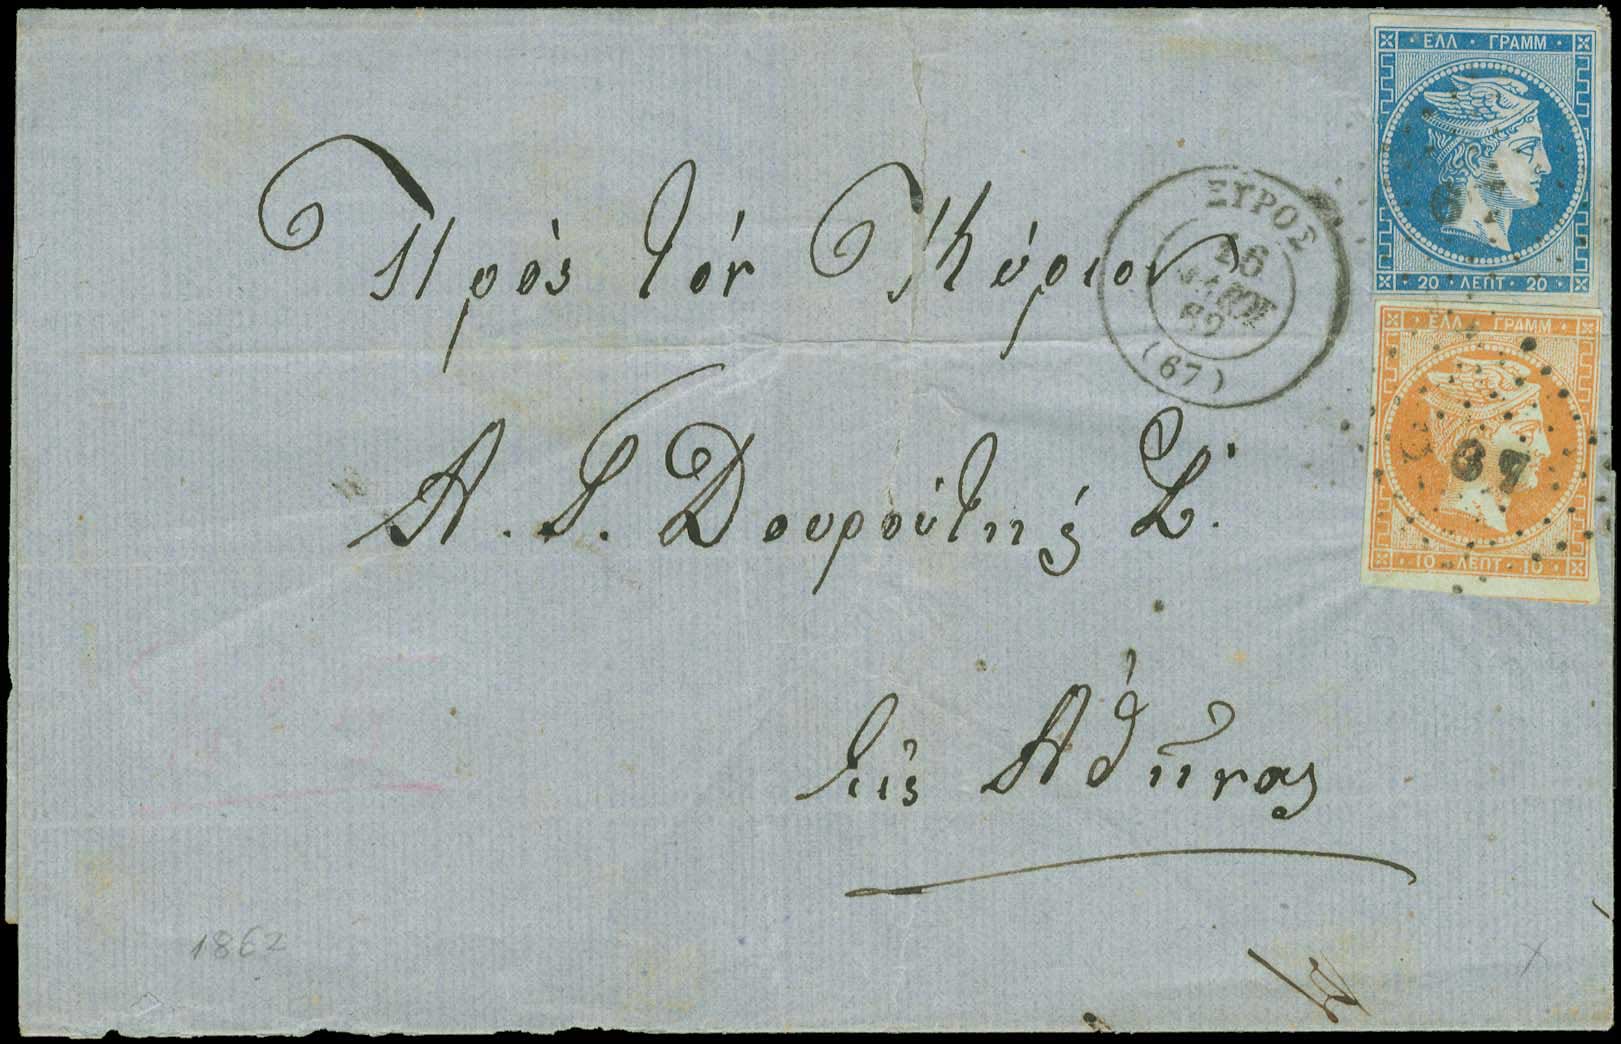 ΕΛΛ · ΓΡΑΜΜ
67
20 · ΛΕΠΤ · 20
ΕΛΛ · ΓΡΑΜΜ
67
10 · ΛΕΠΤ · 10
ΣΥΡΟΣ
16
62
(67)
Πρὸς τὸν Κύριον
Α. Γ. Δουρούτης Σ.
εἰς Ἀθήνας
1862